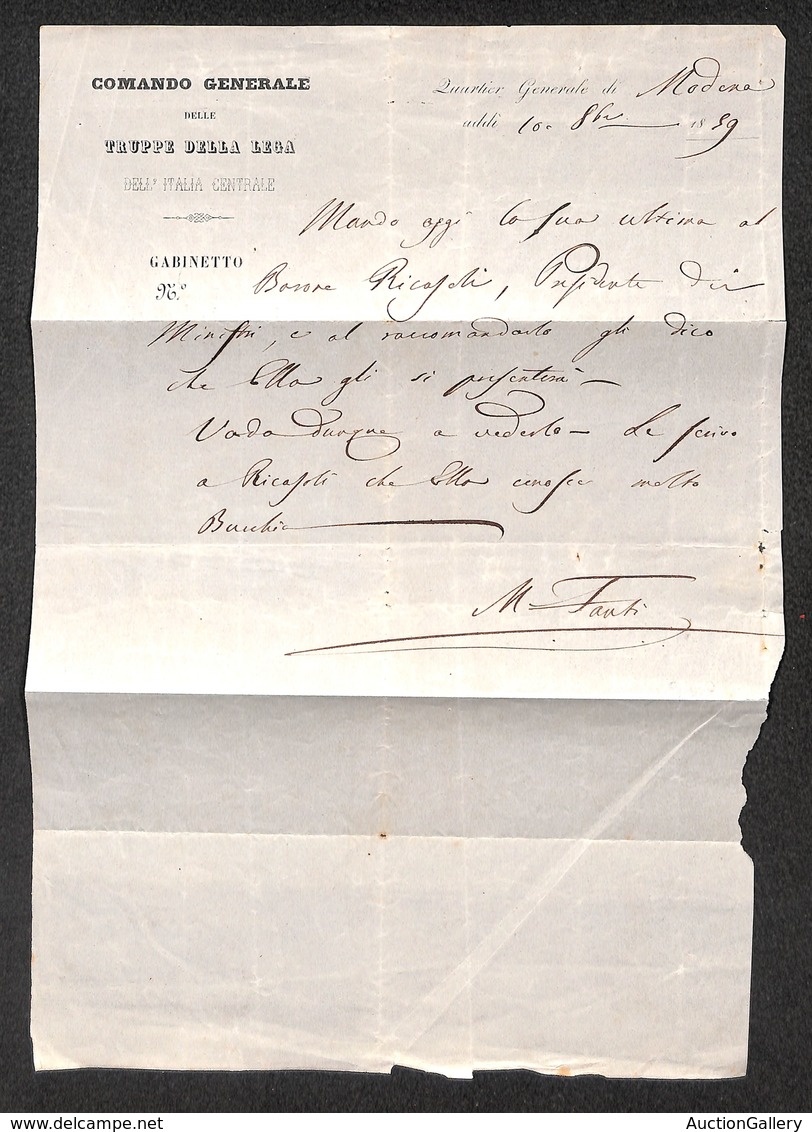 COMANDO GENERALE
DELLE
TRUPPE DELLA LEGA
DELL' ITALIA CENTRALE
GABINETTO
N.º
Quartier Generale di Modena
addì 10 8bre 1859
Mando oggi la sua ultima al
Barone Ricasoli, Presidente dei
Ministri, e al raccomandarlo gli dico
che Ella gli si presenterà—
Vada dunque a vederlo— Le scrivo
a Ricasoli che Ella conosce molto
Bucchia
M Fanti
AuctionGallery